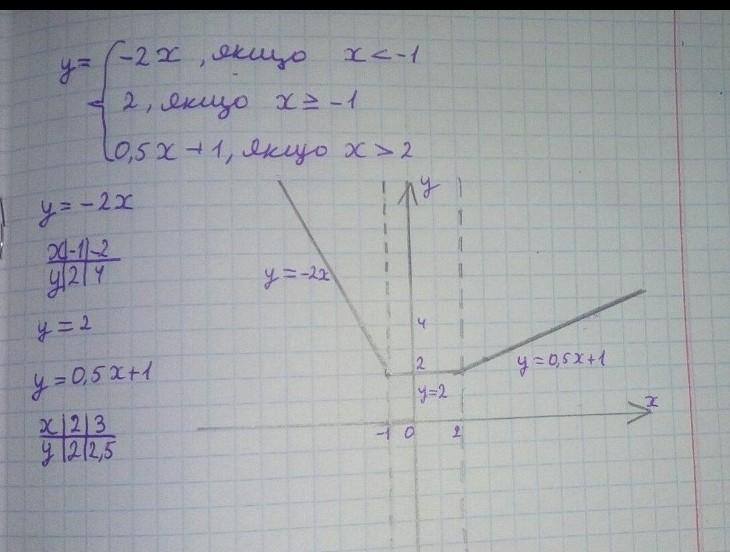 y = { -2x , якщо x < -1
2, якщо x ≥ -1
0,5x + 1, якщо x > 2
y = -2x
x | -1 | -2
y | 2 | 4
y = 2
y = 0,5x+1
x | 2 | 3
y | 2 | 2,5
y
y = -2x
4
2
y = 0,5x+1
y=2
x
-1 0 2